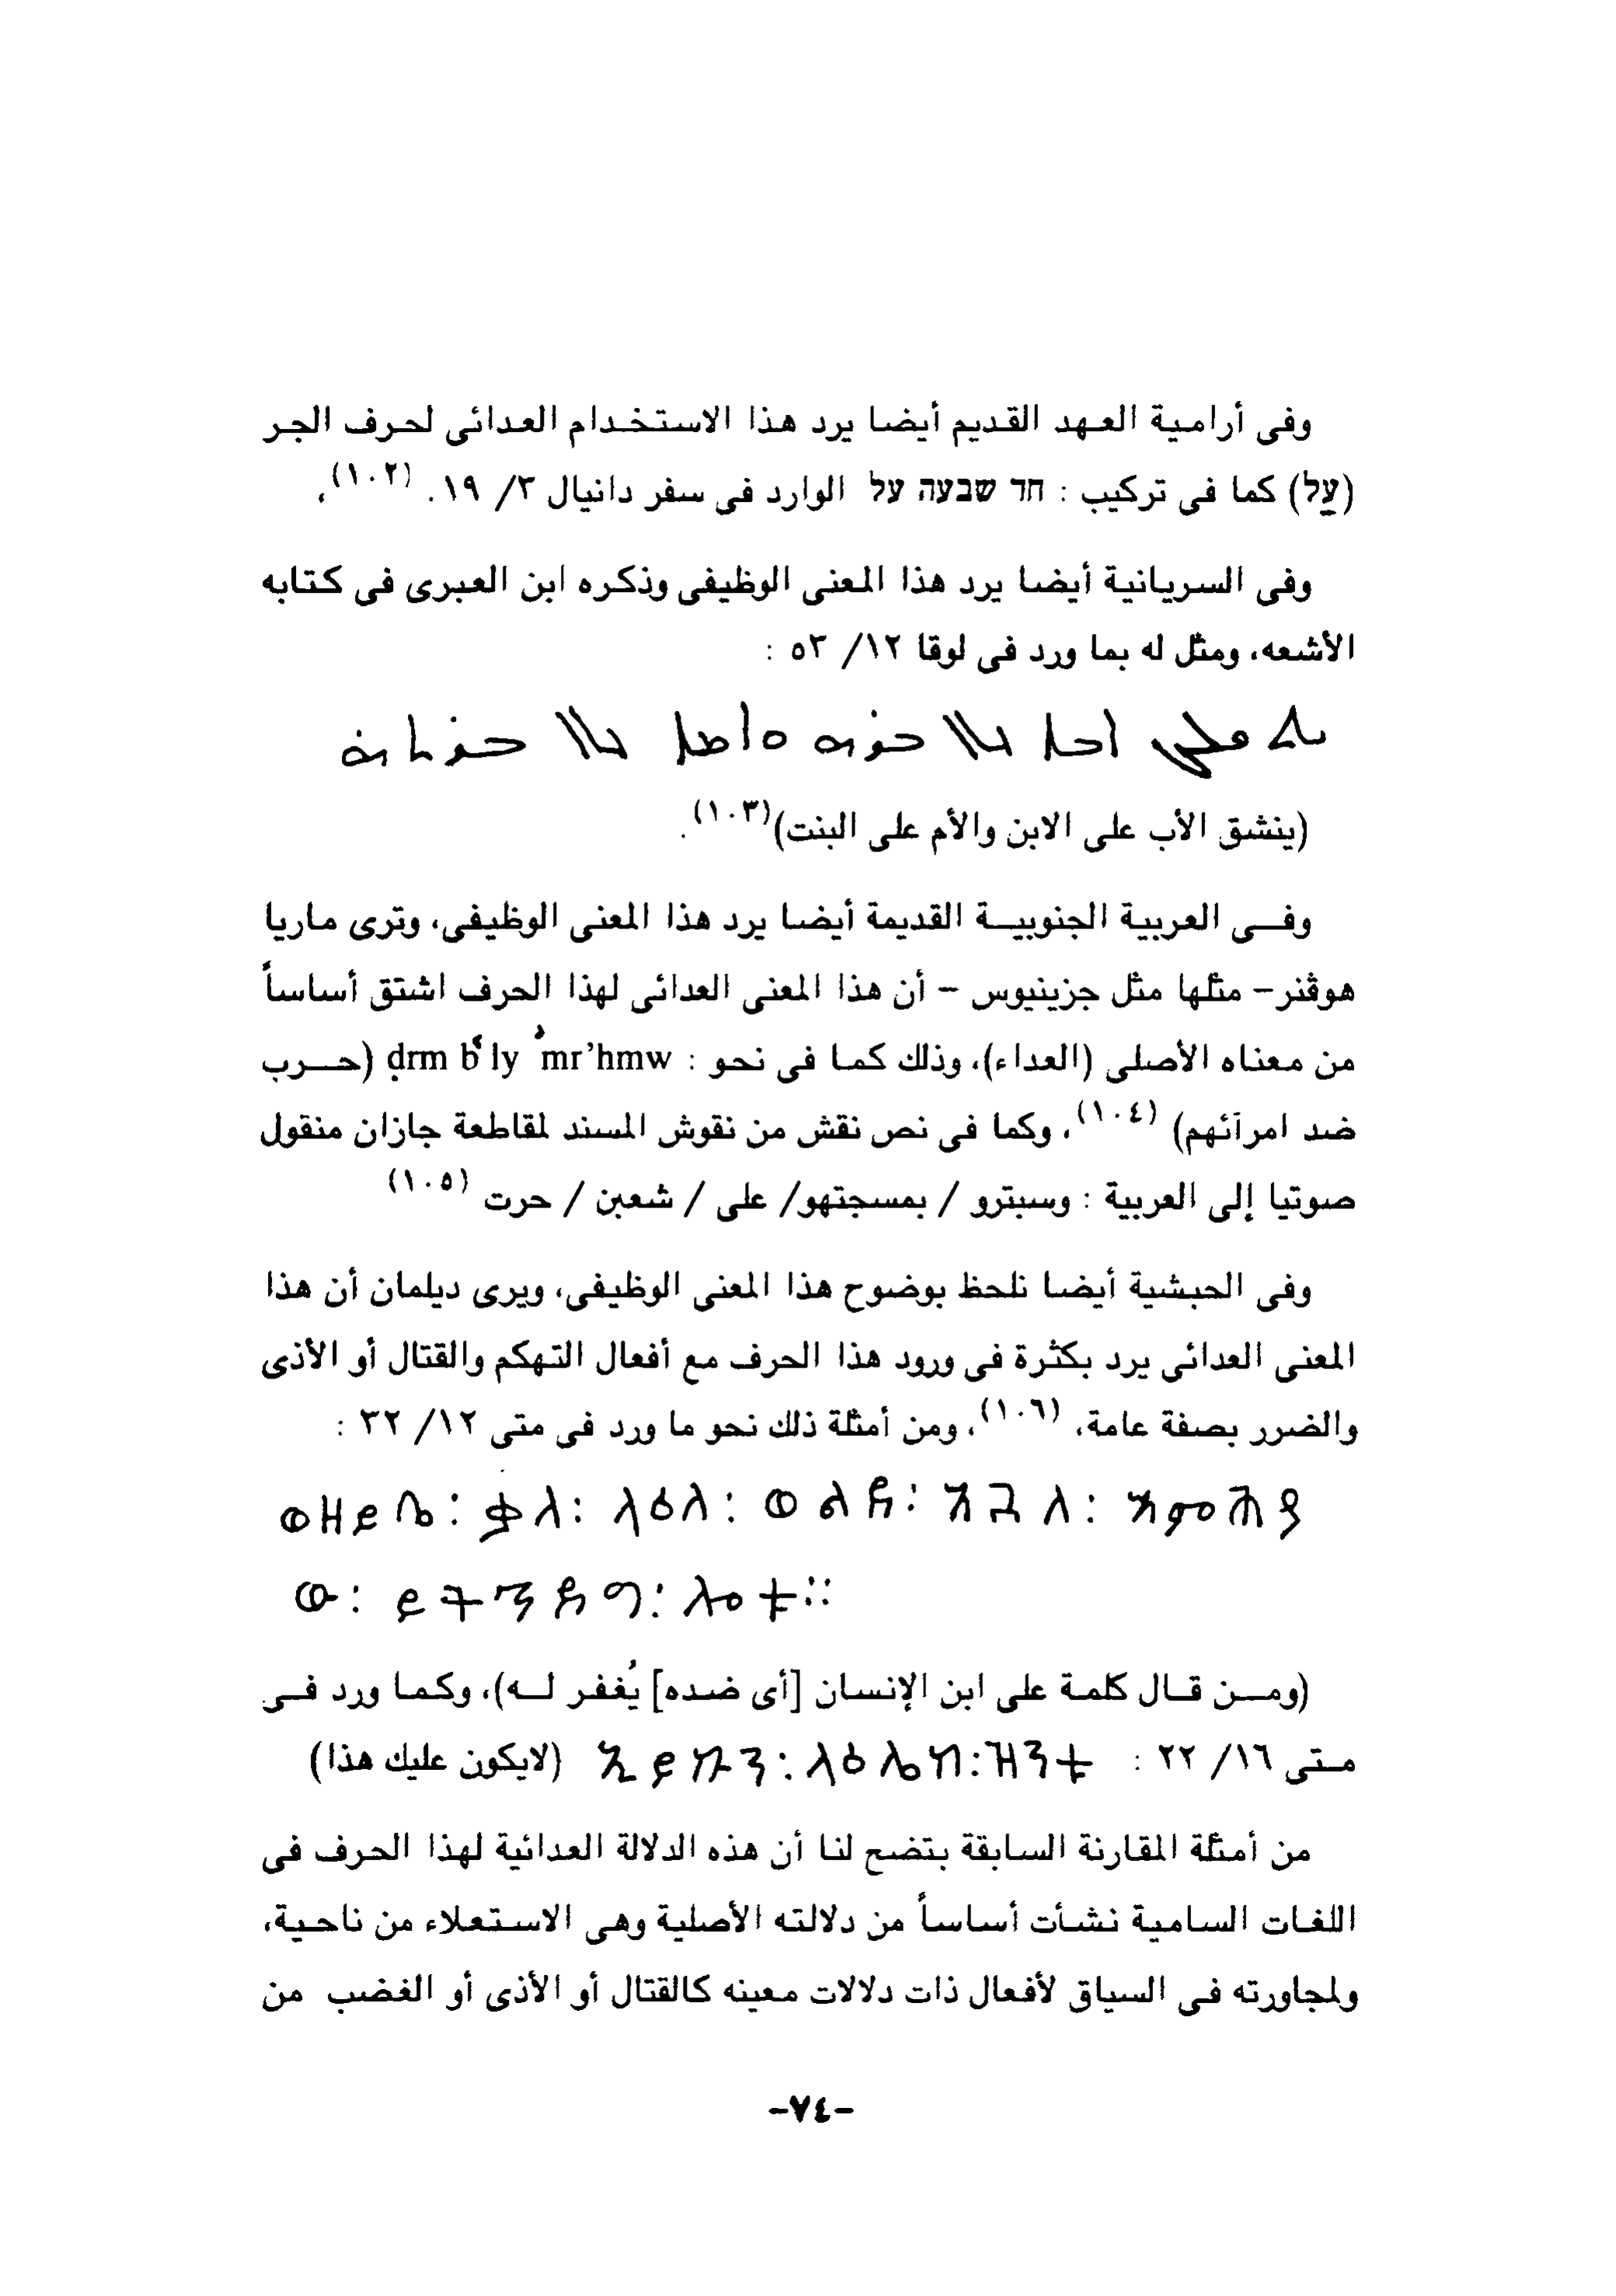 وفى أرامية العهد القديم أيضا يرد هذا الاستخدام العدائى لحرف الجر
(עַל) كما فى تركيب : חד שבעה על الوارد فى سفر دانيال ٣/ ١٩. (١٠٢)،
وفى السريانية أيضا يرد هذا المعنى الوظيفى وذكره ابن العبرى فى كتابه
الأشعه، ومثل له بما ورد فى لوقا ١٢/ ٥٣ :
ܐܒܐ ܥܠ ܒܪܗ ܘܐܡܐ ܥܠ
(ينشق الأب على الابن والأم على البنت)(١٠٣).
وفى العربية الجنوبية القديمة أيضا يرد هذا المعنى الوظيفى، وترى ماريا
هوڤنر- مثلها مثل جزينيوس - أن هذا المعنى العدائى لهذا الحرف اشتق أساساً
من معناه الأصلى (العداء)، وذلك كما فى نحو : ḍrm bʿly ʾmr’hmw (حرب
ضد امرآئهم) (١٠٤)، وكما فى نص نقش من نقوش المسند لمقاطعة جازان منقول
صوتيا إلى العربية : وسبترو / بمسجتهو/ على / شعبن / حرت (١٠٥)
وفى الحبشية أيضا نلحظ بوضوح هذا المعنى الوظيفى، ويرى ديلمان أن هذا
المعنى العدائى يرد بكثرة فى ورود هذا الحرف مع أفعال التهكم والقتال أو الأذى
والضرر بصفة عامة، (١٠٦)، ومن أمثلة ذلك نحو ما ورد فى متى ١٢/ ٣٢ :
ወዘይቤ፡ ቃለ፡ ላዕለ፡ ወልደ፡ እጓለ፡ እመሕያ
ው፡ ይትኀደግ፡ ሎቱ።
(ومن قال كلمة على ابن الإنسان [أى ضده] يُغفر له)، وكما ورد فى
متى ١٦/ ٢٢ : ኢይኩን፡ላዕሌከ፡ዝንቱ (لايكون عليك هذا)
من أمثلة المقارنة السابقة بتضح لنا أن هذه الدلالة العدائية لهذا الحرف فى
اللغات السامية نشأت أساساً من دلالته الأصلية وهى الاستعلاء من ناحية،
ولمجاورته فى السياق لأفعال ذات دلالات معينه كالقتال أو الأذى أو الغضب من
-٧٤-